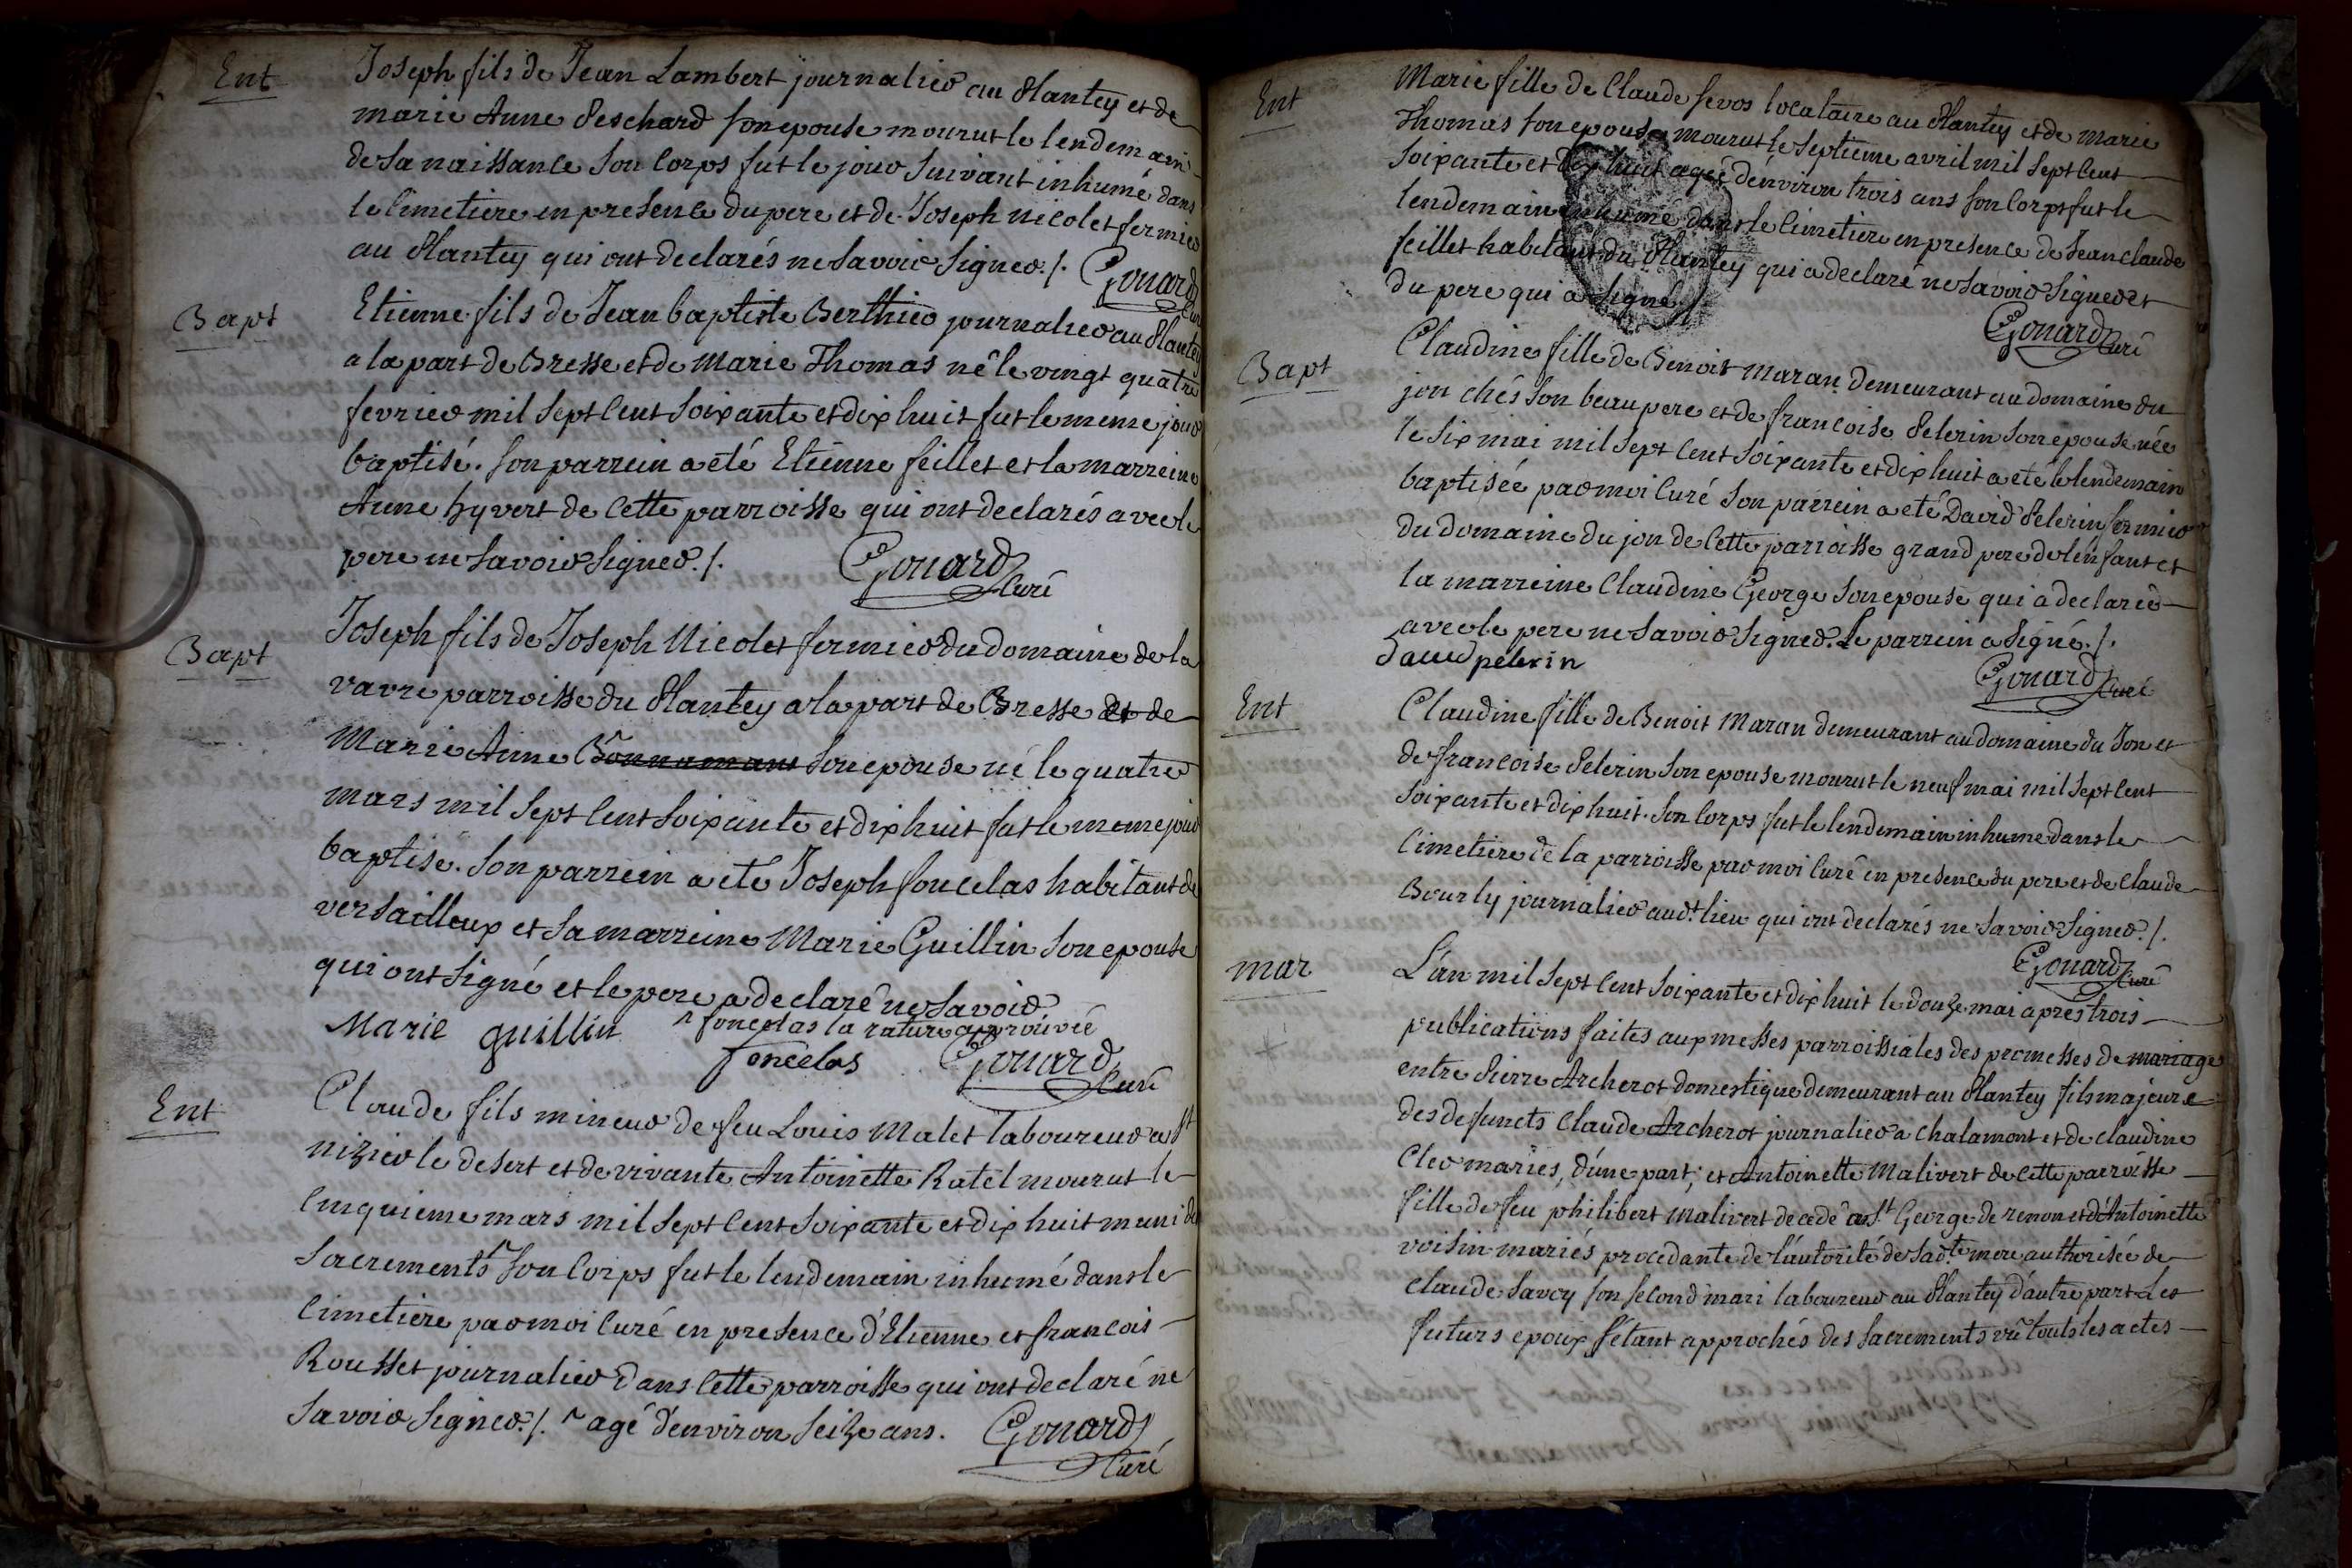 Ent
Joseph fils de Jean Lambert journalier au Plantey et de
marie Anne Peschard son epouse mourut le lendemain
de sa naissance son corps fut le jour suivant inhumé dans
le cimetiere en presence du pere et de Joseph Nicolet fermier
au Plantey qui ont declarés ne savoir signer ./.
Gouard
Curé
Bapt
Etienne fils de Jean baptiste Berthier journalier au Plantey
a la part de Bresse et de Marie Thomas né le vingt quatre
fevrier mil sept cent soixante et dix huit fut le meme jour
baptisé. son parrein a eté Etienne feillet et la marreine
Anne hyvert de cette parroisse qui ont declarés avec le
pere ne savoir signer ./.
Gouard
Curé
Bapt
Joseph fils de Joseph Nicolet fermier du domaine de la
vavre parroisse du Plantey a la part de Bresse et de
Marie Anne Bonnamant son epouse né le quatre
mars mil sept cent soixante et dix huit fut le meme jour
baptisé. son parrein a eté Joseph foncelas habitant de
versailleux et sa marreine Marie Guillin son epouse
qui ont signé et le pere a declaré ne savoir
^ foncelas la rature approuvée
Marie guillin
foncelas
Gouard
Curé
Ent
Claude fils mineur de feu Louis Malet laboureur a St
nizier le desert et de vivante Antoinette Ratel mourut le
cinquieme mars mil sept cent soixante et dix huit muni des
sacrements ^ son corps fut le lendemain inhumé dans le
cimetiere par moi curé en presence d'Etienne et francois
Rousset journalier dans cette parroisse qui ont declaré ne
savoir signer ./. ^ agé d'environ seize ans.
Gouard
Curé
Ent
Marie fille de Claude sevos localaire au Plantey et de Marie
Thomas son epouse mourut le septieme avril mil sept cent
soixante et dix huit agée d'environ trois ans son corps fut le
lendemain inhumé dans le cimetiere en presence de Jean claude
feillet habitant du Plantey qui a declaré ne savoir signer et
du pere qui a signé
Gouard
Curé
Bapt
Claudine fille de Benoit Maran demeurant au domaine du
jon chés son beau pere et de francoise Pelerin son epouse née
le six mai mil sept cent soixante et dix huit a eté le lendemain
baptisée par moi curé son parrein a eté David Pelerin fermier
du domaine du jon de cette parroisse grand pere de l'enfant et
la marreine Claudine George son epouse qui a declarés
avec le pere ne savoir signer. Le parrein a signé ./.
David pelerin
Gouard
Curé
Ent
Claudine fille de Benoit Maran demeurant au domaine du Jon et
de francoise Pelerin son epouse mourut le neuf mai mil sept cent
soixante et dix huit. son corps fut le lendemain inhumé dans le
cimetiere de la parroisse par moi curé en presence du pere et de Claude
Bourly journalier audt. lieu qui ont declarés ne savoir signer ./.
Gouard
Curé
mar
L'an mil sept cent soixante et dix huit le douze mai apres trois
publications faites aux messes parroissiales des promesses de mariage
entre Pierre Archerot domestique demeurant au Plantey fils majeure
des defuncts Claude Archerot journalier a Chalamont et de claudine
Cler mariés, d'une part; et Antoinette Malivert de cette parroisse
fille de feu philibert malivert decedé a St. George de renon et d'Antoinette
voisin mariés procedante de l'autorité de sadte. mere authorisée de
Claude Savey son second mari laboureur au Plantey d'autre part Les
futurs epoux s'étant approchés des sacrements vû touts les actes